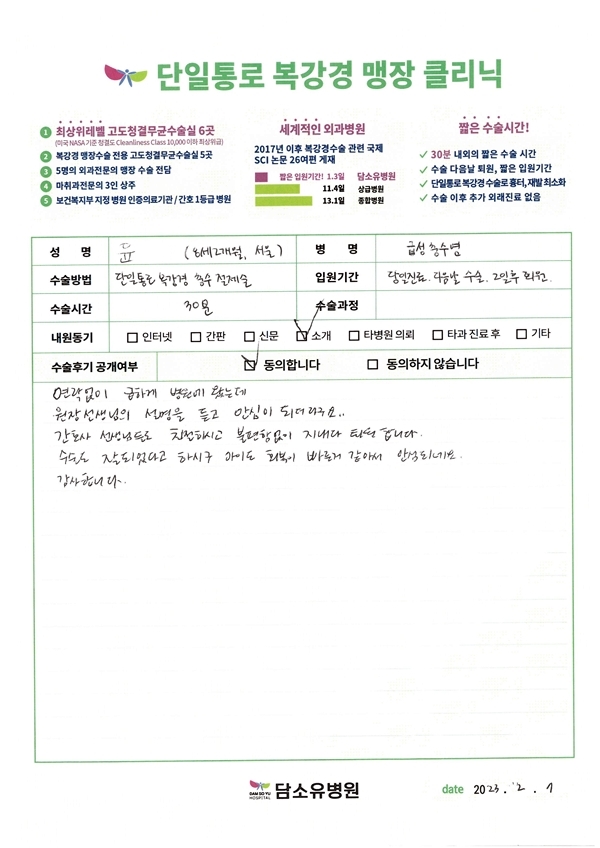 단일통로 복강경 맹장 클리닉
1 최상위레벨 고도청결무균수술실 6곳
(미국 NASA 기준 청결도 Cleanliness Class 10,000 이하 최상위급)
2 복강경 맹장수술 전용 고도청결무균수술실 5곳
3 5명의 외과전문의 맹장 수술 전담
4 마취과전문의 3인 상주
5 보건복지부 지정 병원 인증의료기관 / 간호 1등급 병원
세계적인 외과병원
2017년 이후 복강경수술 관련 국제
SCI 논문 26여편 게재
짧은 입원기간! 1.3일 담소유병원
11.4일 상급병원
13.1일 종합병원
짧은 수술시간!
✓ 30분 내외의 짧은 수술 시간
✓ 수술 다음날 퇴원, 짧은 입원기간
✓ 단일통로 복강경 수술로 흉터, 재발 최소화
✓ 수술 이후 추가 외래진료 없음
성 명 윤 (8세2개월, 서울) 병 명 급성 충수염
수술방법 단일통로 복강경 충수 절제술 입원기간 당일진료. 다음날 수술. 2일후 퇴원.
수술시간 30분 수술과정
내원동기 인터넷 간판 신문 소개 타병원 의뢰 타과 진료 후 기타
수술후기 공개여부 동의합니다 동의하지 않습니다
연락없이 급하게 병원에 왔는데
원장선생님의 설명을 듣고 안심이 되더라구요..
간호사 선생님들도 친절하시고 불편함없이 지내다 퇴원 합니다.
수술도 잘되었다고 하시구 아이도 회복이 빠른거 같아서 안심되네요.
감사합니다.
DAM SO YU
HOSPITAL
담소유병원
date 2023. 2. 7